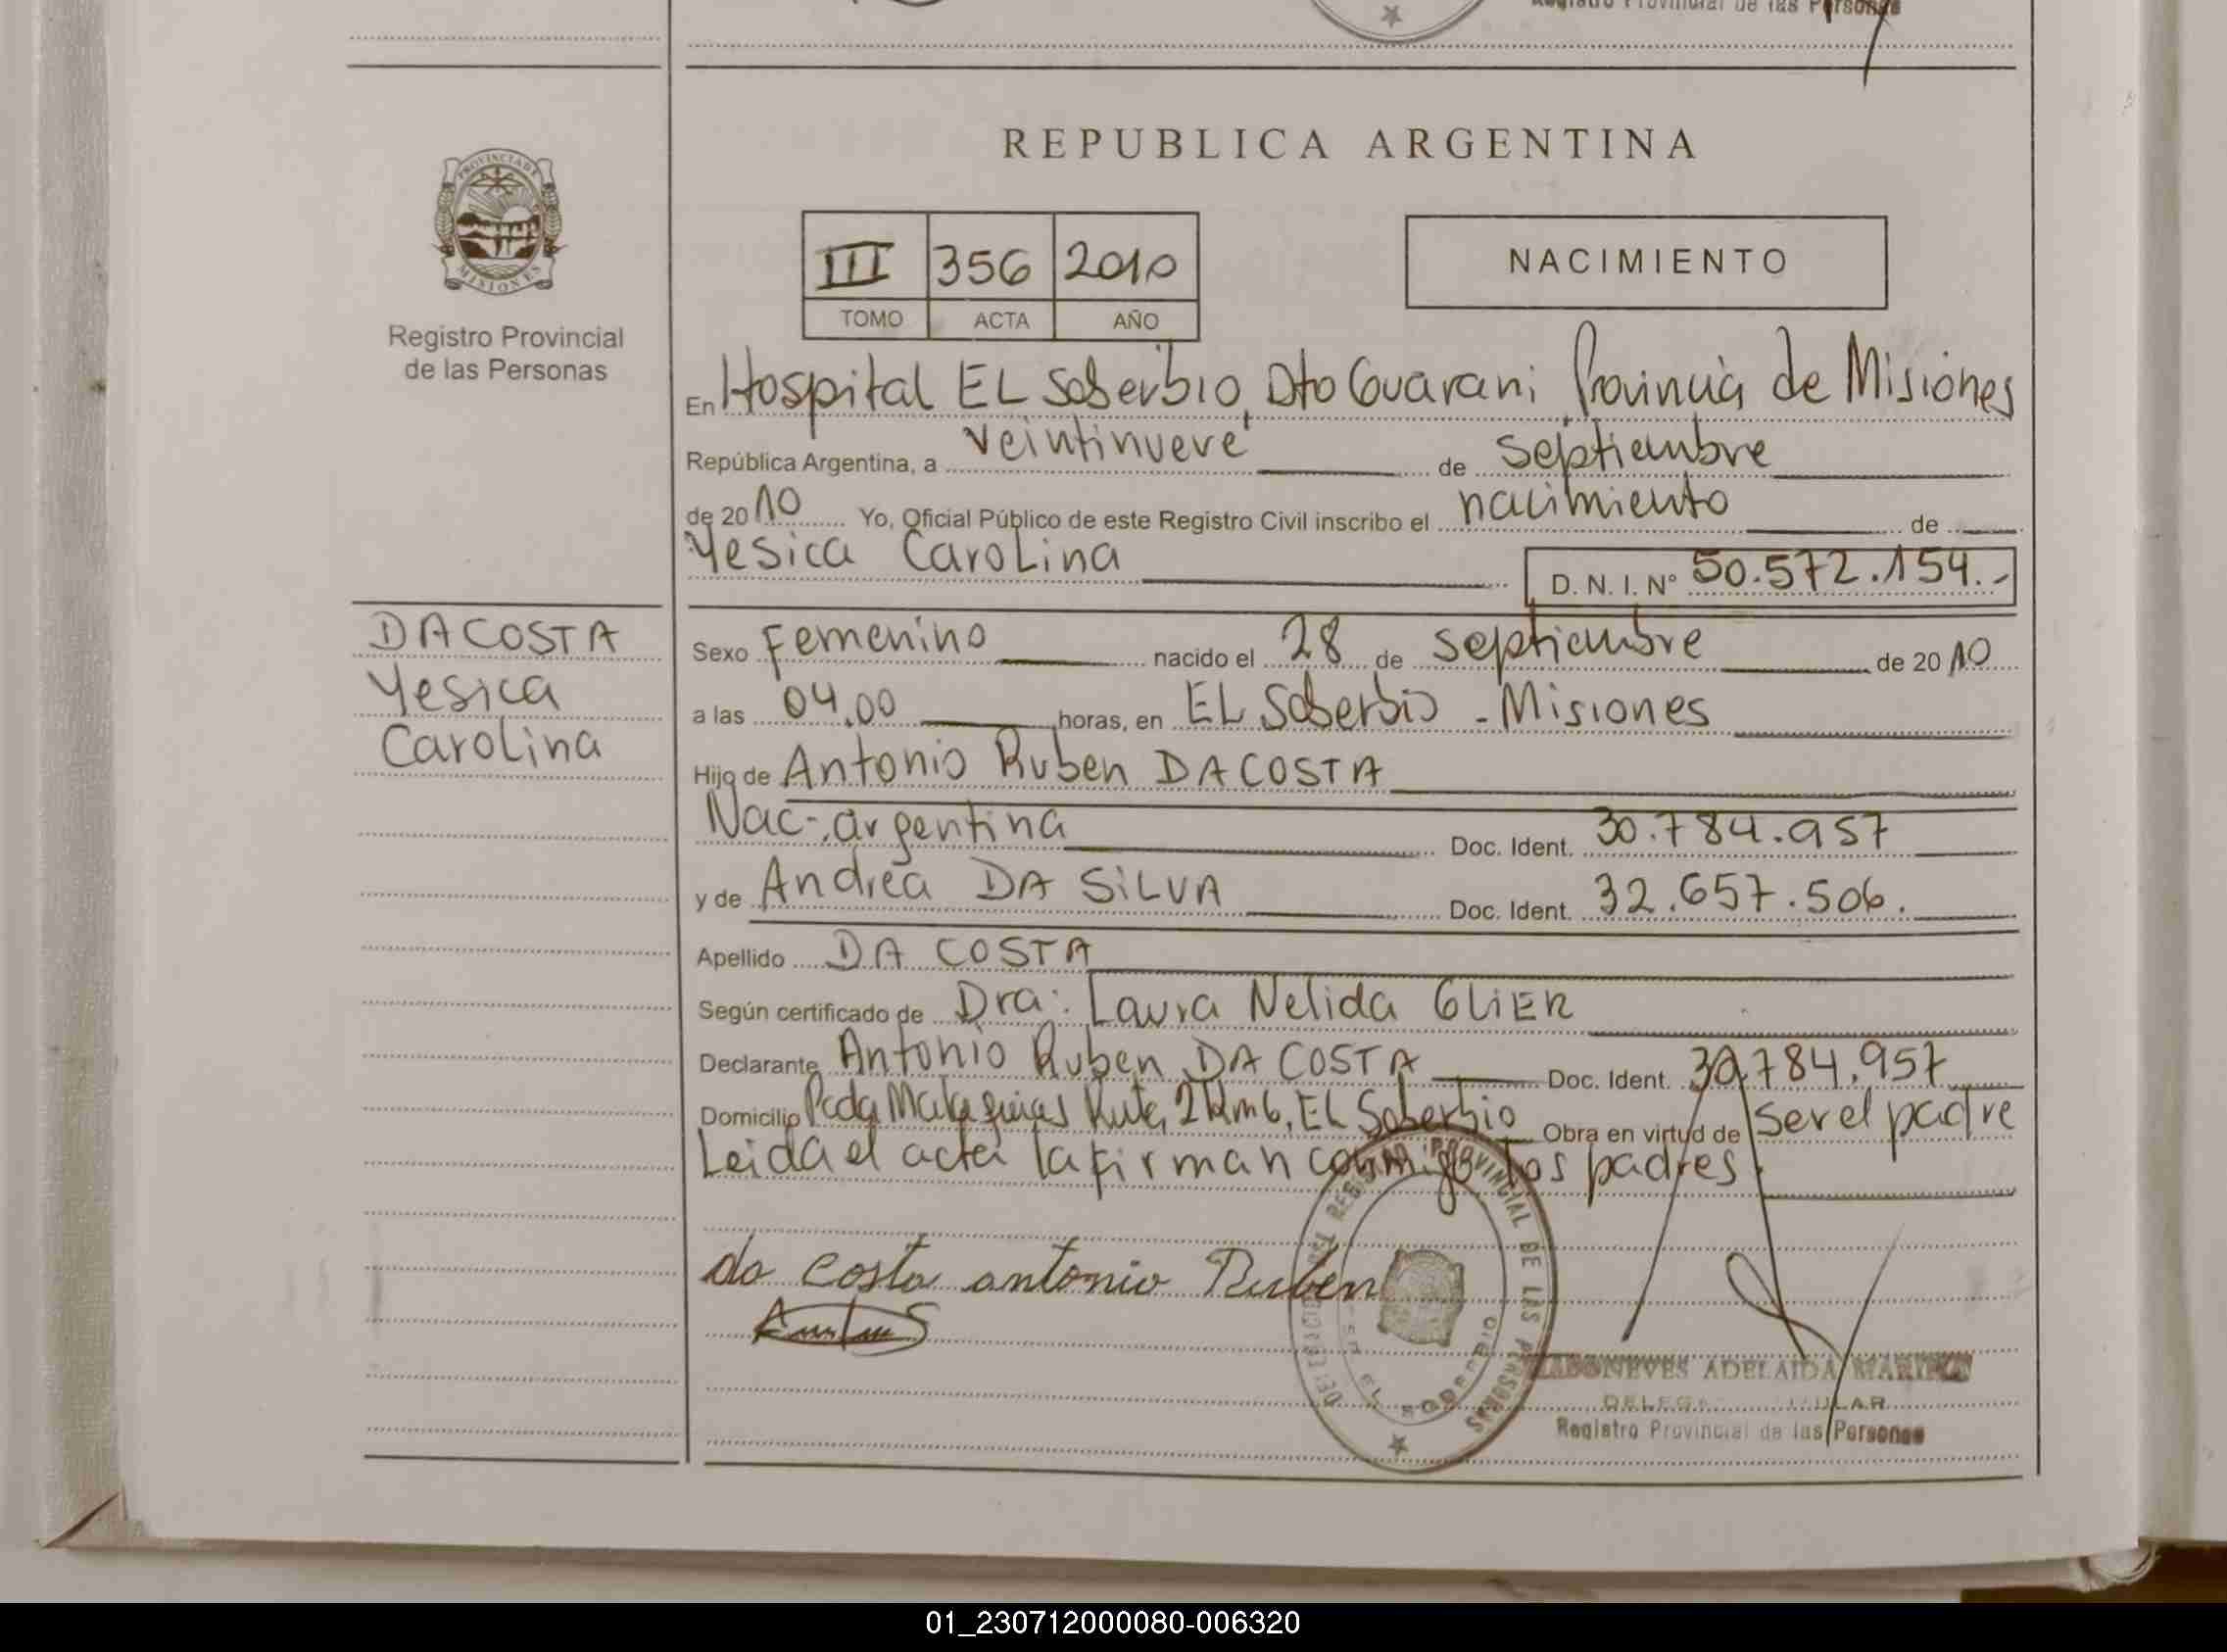 Registro Provincial de las Personas
REPUBLICA ARGENTINA
PROVINCIA DE
MISIONES
Registro Provincial
de las Personas
III 356 2010
TOMO ACTA AÑO
NACIMIENTO
En Hospital EL Soberbio, Dto Guarani, Provincia de Misiones
República Argentina, a veintinueve de septiembre
de 2010 Yo, Oficial Público de este Registro Civil inscribo el nacimiento de
Yesica Carolina D. N. I. Nº 50.572.154.-
DA COSTA
Yesica
Carolina
Sexo Femenino nacido el 28 de septiembre de 2010
a las 04.00 horas, en EL Soberbio - Misiones
Hijo de Antonio Ruben DA COSTA
Nac-argentina Doc. Ident. 30.784.957
y de Andrea DA SILVA Doc. Ident. 32.657.506.
Apellido DA COSTA
Según certificado de Dra: Laura Nelida GLIER
Declarante Antonio Ruben DA COSTA Doc. Ident. 30.784.957
Domicilio Pcda Ruta 2 km 6, EL Soberbio Obra en virtud de ser el padre
Leida el acta la firman conmigo los padres.
da costa antonio Ruben
REGISTRO PROVINCIAL DE LAS PERSONAS
EL SOBERBIO
ADELAIDA
Registro Provincial de las Personas
01_230712000080-006320